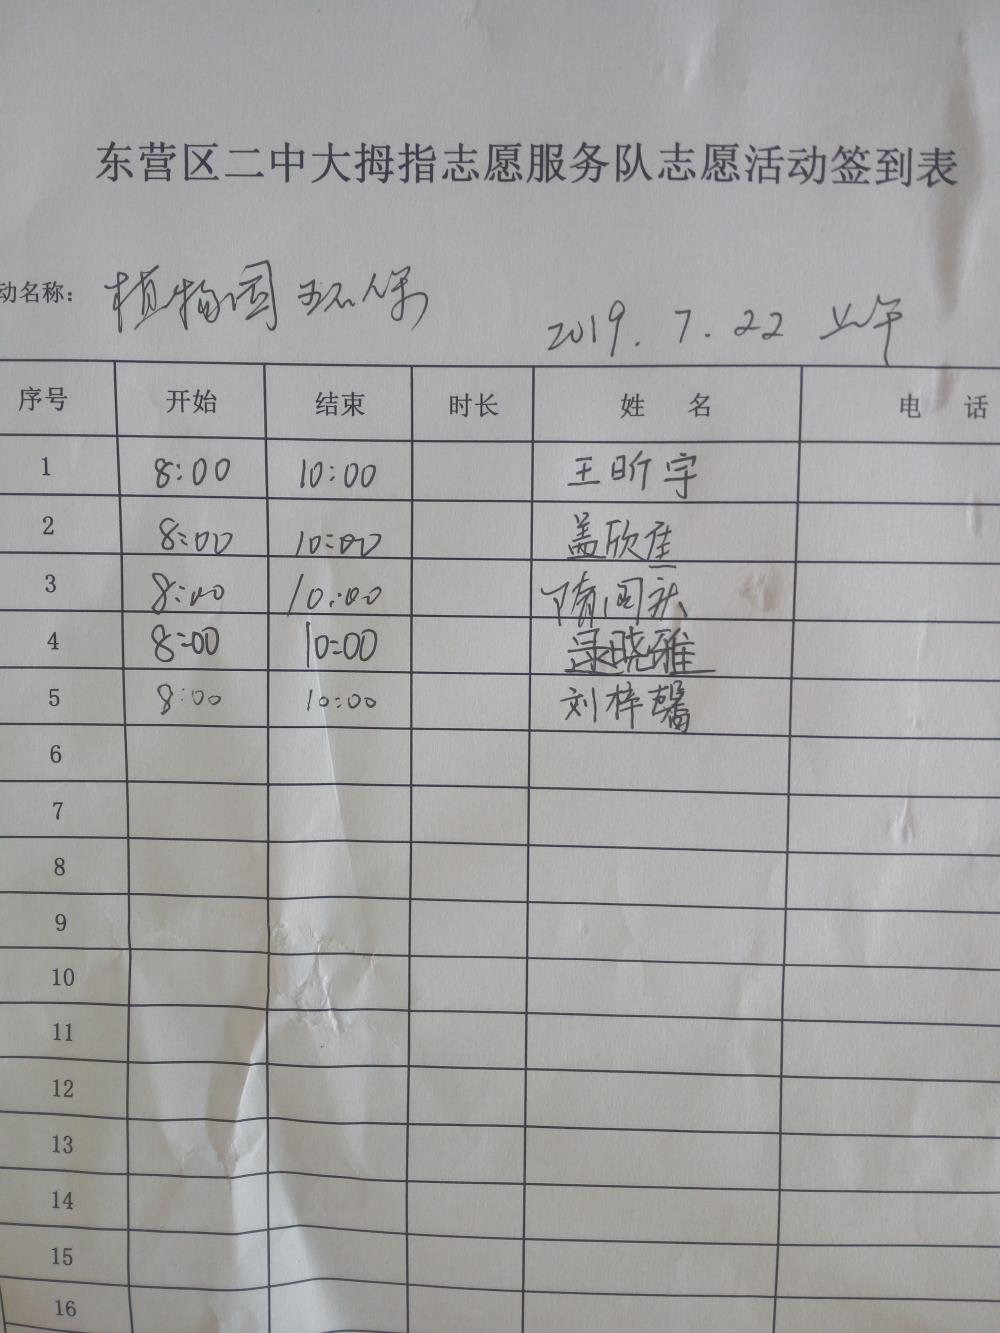 东营区二中大拇指志愿服务队志愿活动签到表
动名称： 植物园环保 2019.7.22 上午
序号 开始 结束 时长 姓 名 电 话
1 8:00 10:00 王昕宇
2 8:00 10:00 盖欣佳
3 8:00 10:00
4 8:00 10:00 晓雅
5 8:00 10:00 刘梓馨
6
7
8
9
10
11
12
13
14
15
16